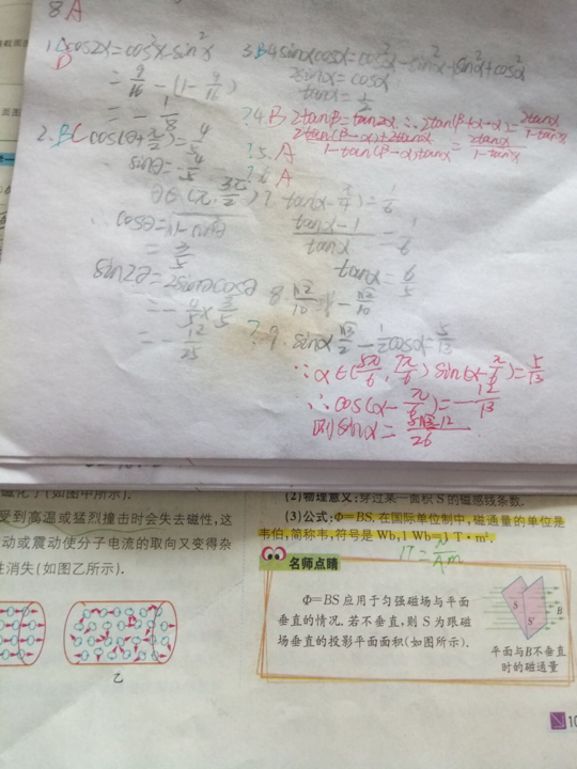 8 A
1. C cos2α=cos²α-sin²α
D
= 9/16 - (1 - 9/16)
= - 1/8
2. B C cos(θ+π/2)=4/5
sinθ=-4/5
θ∈(π, 3π/2)
cosθ=√1-sin²θ
= 3/5
sin2θ=2sinθcosθ
= - 4/5 × 3/5
= - 12/25
3. B 4sinαcosα=cos²α-sin²α+sin²α+cos²α
2sinα=cosα
tanα=1/2
? 4 B 2tanβ=tan2α ∴ 2tan(β+α-α)=2tanα/1-tan²α
2tan(β-α)+2tanα/1-tan(β-α)tanα = 2tanα/1-tan²α
? 5. A
? 6 A
7. tan(α-π/4)=1/6
tanα-1/tanα = 1/6
tanα=6/5
8. √2/10 或 -√2/10
? 9. sinα √3/2 - 1/2 cosα=5/13
∵α∈(5π/6, 7π/6) sin(α-π/6)=5/13
∴cos(α-π/6)=-12/13
则sinα=5√3-12/26
磁化了(如图甲所示).
受到高温或猛烈撞击时会失去磁性,这
动或震动使分子电流的取向又变得杂
性消失(如图乙所示).
乙
(2)物理意义:穿过某一面积S的磁感线条数.
(3)公式:Φ=BS.在国际单位制中,磁通量的单位是
韦伯,简称韦,符号是 Wb,1 Wb=1 T·m².
1T=N/A·m
名师点睛
Φ=BS应用于匀强磁场与平面
垂直的情况.若不垂直,则S为跟磁
场垂直的投影平面面积(如图所示).
S
S′
B
平面与B不垂直
时的磁通量
10